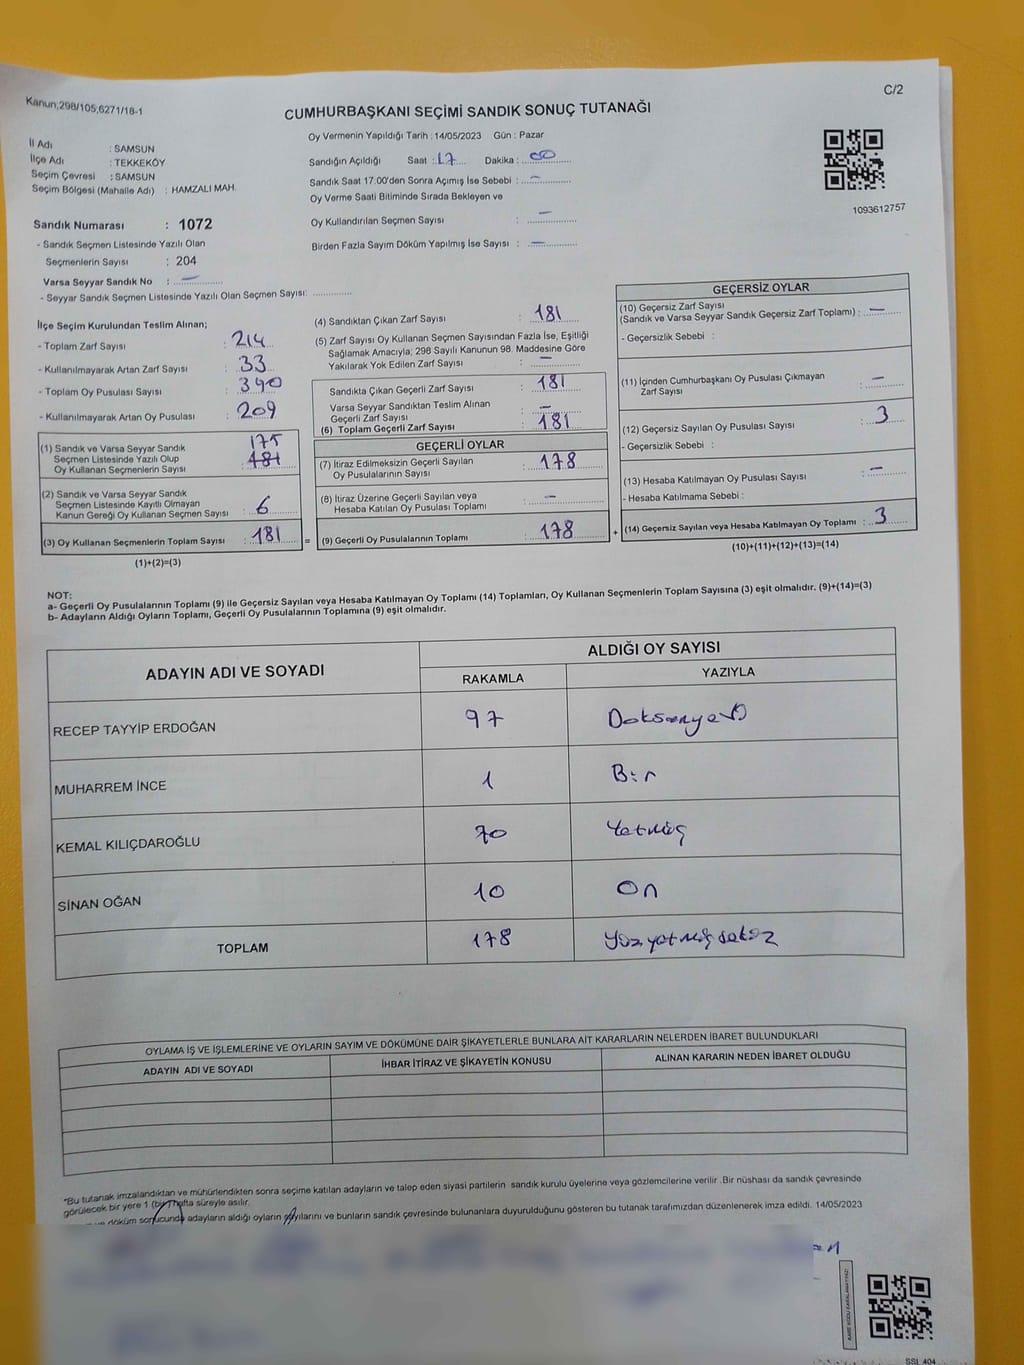 Kanun;298/105,6271/18-1
C/2
CUMHURBAŞKANI SEÇİMİ SANDIK SONUÇ TUTANAĞI
İl Adı : SAMSUN
İlçe Adı : TEKKEKÖY
Seçim Çevresi : SAMSUN
Seçim Bölgesi (Mahalle Adı) : HAMZALI MAH.
Oy Vermenin Yapıldığı Tarih : 14/05/2023 Gün : Pazar
Sandığın Açıldığı Saat : 17 Dakika : 00
Sandık Saat 17:00'den Sonra Açımış İse Sebebi : –
Oy Verme Saati Bitiminde Sırada Bekleyen ve
Oy Kullandırılan Seçmen Sayısı : –
Birden Fazla Sayım Döküm Yapılmış İse Sayısı : –
1093612757
Sandık Numarası : 1072
- Sandık Seçmen Listesinde Yazılı Olan
Seçmenlerin Sayısı : 204
Varsa Seyyar Sandık No : –
- Seyyar Sandık Seçmen Listesinde Yazılı Olan Seçmen Sayısı:
İlçe Seçim Kurulundan Teslim Alınan;
- Toplam Zarf Sayısı : 214
- Kullanılmayarak Artan Zarf Sayısı : 33
- Toplam Oy Pusulası Sayısı : 390
- Kullanılmayarak Artan Oy Pusulası : 209
(1) Sandık ve Varsa Seyyar Sandık 175
Seçmen Listesinde Yazılı Olup
Oy Kullanan Seçmenlerin Sayısı : 181
(2) Sandık ve Varsa Seyyar Sandık
Seçmen Listesinde Kayıtlı Olmayan
Kanun Gereği Oy Kullanan Seçmen Sayısı : 6
(3) Oy Kullanan Seçmenlerin Toplam Sayısı : 181
(1)+(2)=(3)
(4) Sandıktan Çıkan Zarf Sayısı : 181
(5) Zarf Sayısı Oy Kullanan Seçmen Sayısından Fazla İse, Eşitliği
Sağlamak Amacıyla; 298 Sayılı Kanunun 98. Maddesine Göre
Yakılarak Yok Edilen Zarf Sayısı : –
Sandıkta Çıkan Geçerli Zarf Sayısı : 181
Varsa Seyyar Sandıktan Teslim Alınan
Geçerli Zarf Sayısı : –
(6) Toplam Geçerli Zarf Sayısı : 181
GEÇERLİ OYLAR
(7) İtiraz Edilmeksizin Geçerli Sayılan
Oy Pusulalarının Sayısı : 178
(8) İtiraz Üzerine Geçerli Sayılan veya
Hesaba Katılan Oy Pusulası Toplamı : –
= (9) Geçerli Oy Pusulalarının Toplamı : 178 +
GEÇERSİZ OYLAR
(10) Geçersiz Zarf Sayısı
(Sandık ve Varsa Seyyar Sandık Geçersiz Zarf Toplamı) : –
- Geçersizlik Sebebi :
(11) İçinden Cumhurbaşkanı Oy Pusulası Çıkmayan
Zarf Sayısı : –
(12) Geçersiz Sayılan Oy Pusulası Sayısı : 3
- Geçersizlik Sebebi :
(13) Hesaba Katılmayan Oy Pusulası Sayısı : –
- Hesaba Katılmama Sebebi :
(14) Geçersiz Sayılan veya Hesaba Katılmayan Oy Toplamı : 3
(10)+(11)+(12)+(13)=(14)
NOT:
a- Geçerli Oy Pusulalarının Toplamı (9) ile Geçersiz Sayılan veya Hesaba Katılmayan Oy Toplamı (14) Toplamları, Oy Kullanan Seçmenlerin Toplam Sayısına (3) eşit olmalıdır. (9)+(14)=(3)
b- Adayların Aldığı Oyların Toplamı, Geçerli Oy Pusulalarının Toplamına (9) eşit olmalıdır.
ADAYIN ADI VE SOYADI ALDIĞI OY SAYISI
RAKAMLA YAZIYLA
RECEP TAYYİP ERDOĞAN 97 Doksanyedi
MUHARREM İNCE 1 Bir
KEMAL KILIÇDAROĞLU 70 Yetmiş
SİNAN OĞAN 10 On
TOPLAM 178 Yüzyetmişsekiz
OYLAMA İŞ VE İŞLEMLERİNE VE OYLARIN SAYIM VE DÖKÜMÜNE DAİR ŞİKAYETLERLE BUNLARA AİT KARARLARIN NELERDEN İBARET BULUNDUKLARI
ADAYIN ADI VE SOYADI İHBAR İTİRAZ VE ŞİKAYETİN KONUSU ALINAN KARARIN NEDEN İBARET OLDUĞU
*Bu tutanak imzalandıktan ve mühürlendikten sonra seçime katılan adayların ve talep eden siyasi partilerin sandık kurulu üyelerine veya gözlemcilerine verilir .Bir nüshası da sandık çevresinde
görülecek bir yere 1 (bir) hafta süreyle asılır.
döküm sonucunda adayların aldığı oyların sayılarını ve bunların sandık çevresinde bulunanlara duyurulduğunu gösteren bu tutanak tarafımızdan düzenlenerek imza edildi. 14/05/2023
SSI_404